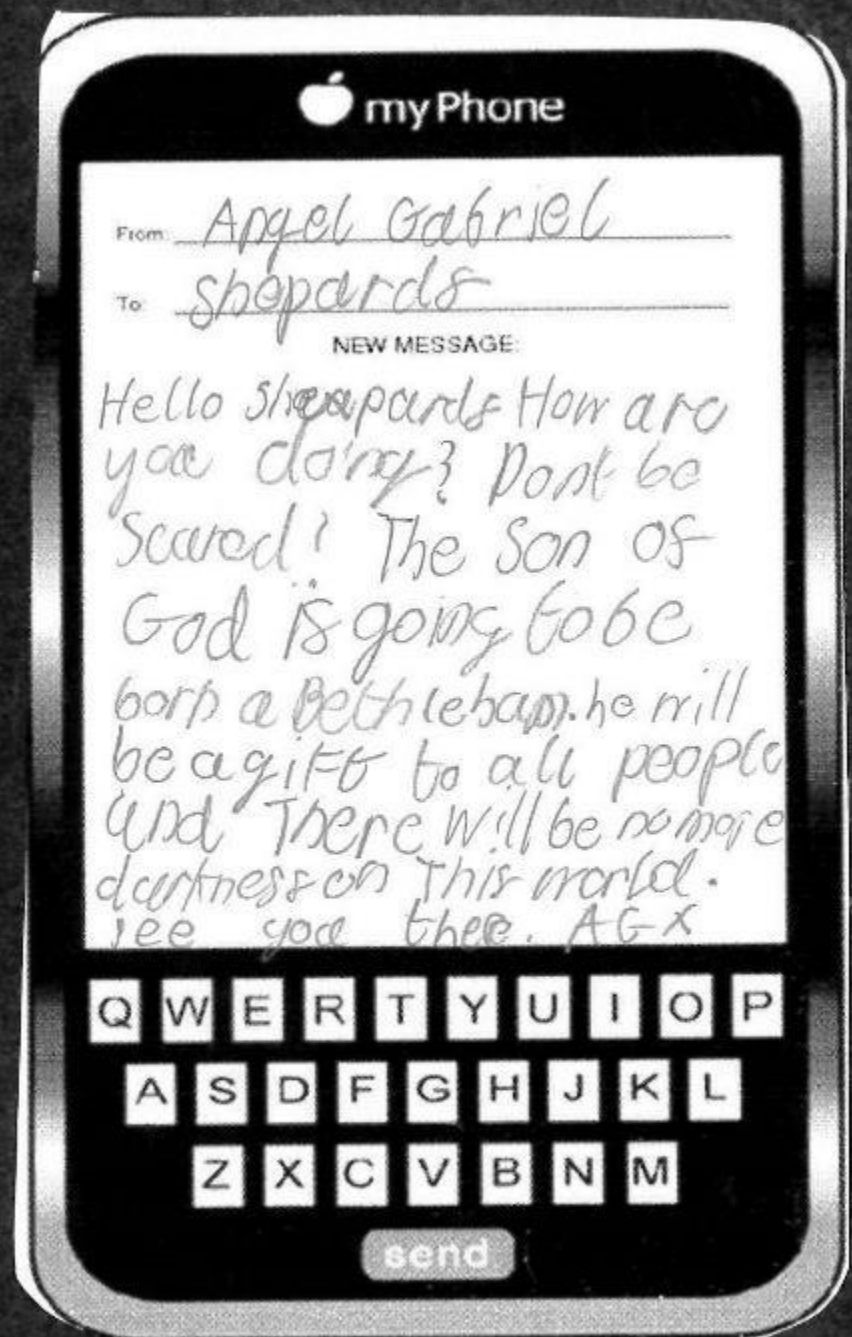 myPhone
From: Angel Gabriel
To: Shepards
NEW MESSAGE:
Hello sheapards How are
you doing? Dont be
Scared! The Son of
God is going to be
born a Bethleham. he will
be a gift to all people
and There will be no more
darkness on This world.
see you thee. AGX
Q W E R T Y U I O P
A S D F G H J K L
Z X C V B N M
send